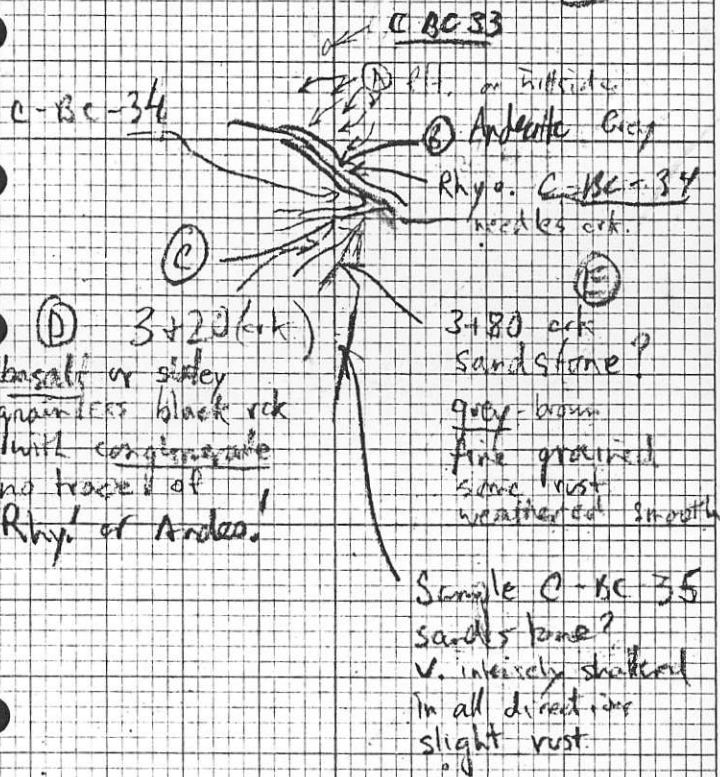 C BC 33
C-BC-34
(A) flt. or hillside
(B) Andesite Grey
Rhyo. C-BC-34
needles crk.
(C)
(D) 3+20 (crk)
basalt or
grainless black rck
with conglomerate
no trace of
Rhy! or Andes.!
(E)
3+80 crk
sandstone?
grey-brown
fine grained
some rust
weathered smooth
Sample C-BC-35
sandstone?
v. intensely shattered
in all directions
slight rust